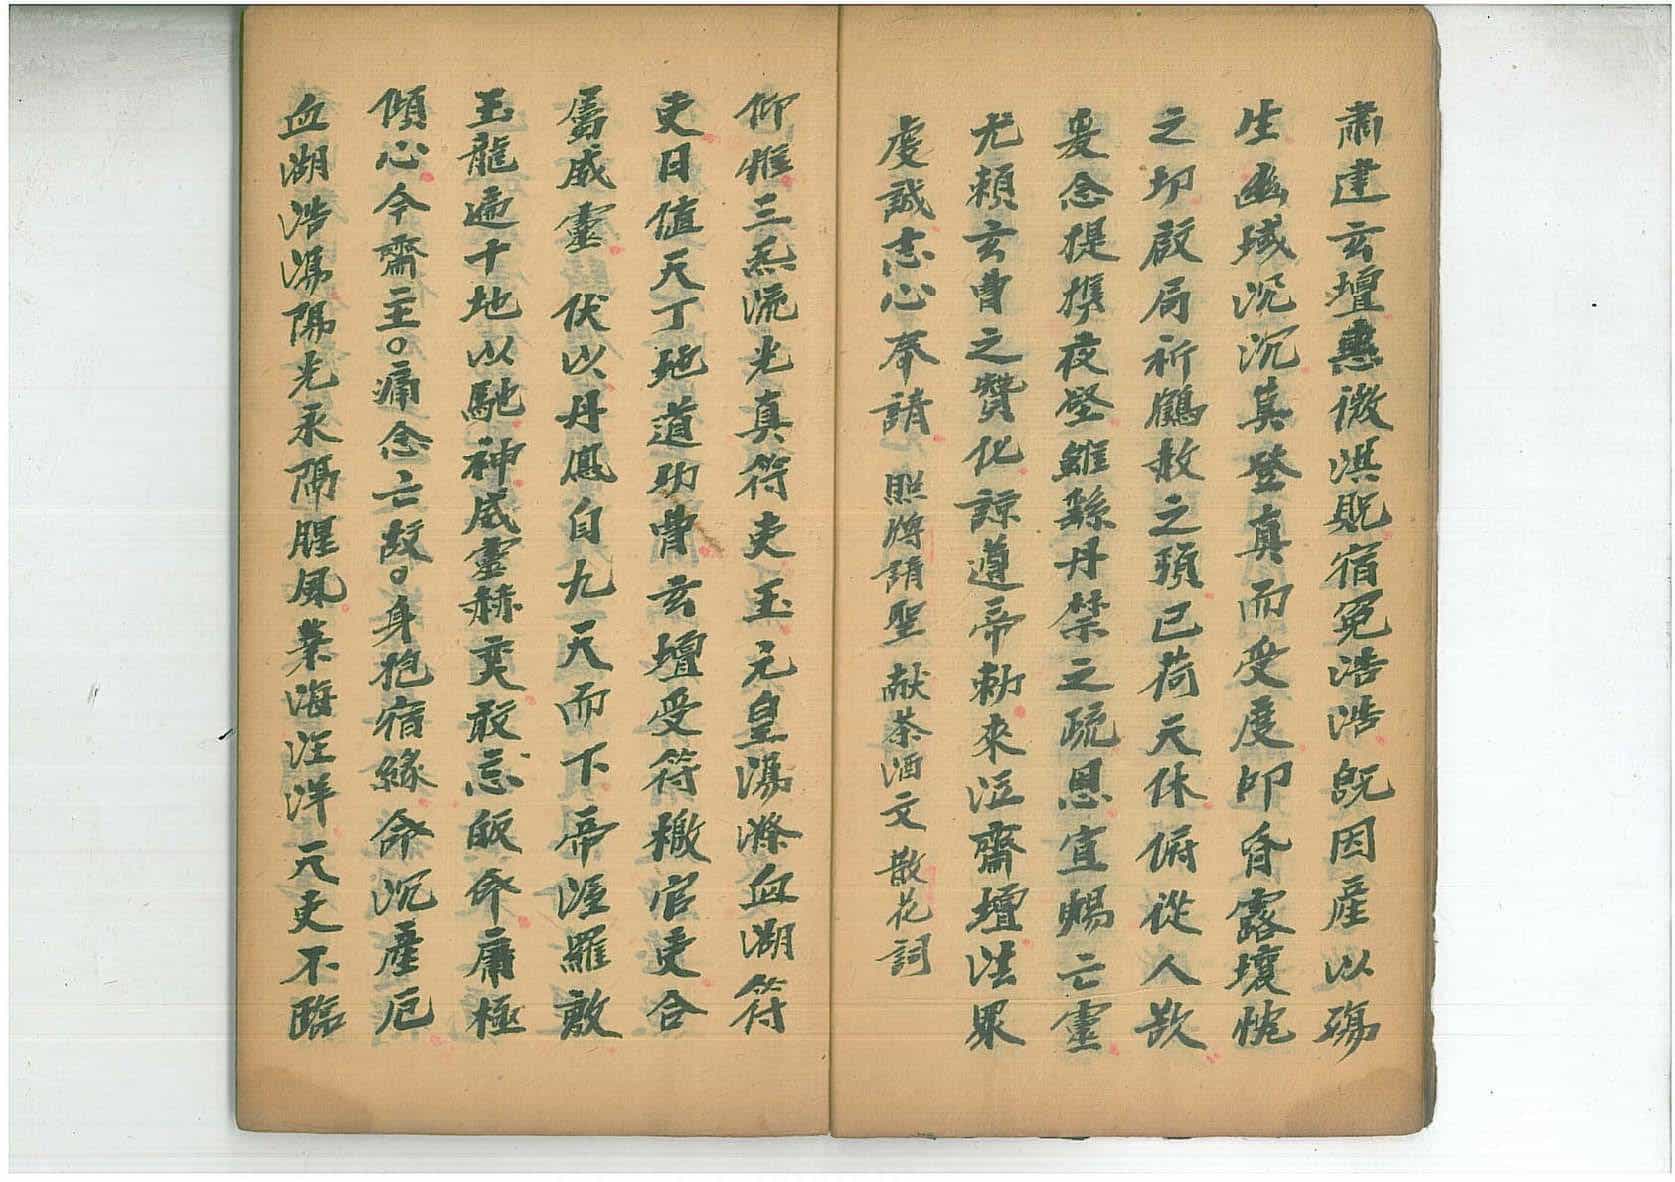 肅建玄壇懇徼洪貺宿冤浩浩既因產以殤
生幽域沉沉莫登真而受度仰睿露壞忱
之卬啟局祈鶴赦之頒已荷天休俯從人欵
爰念提携夜壑雖繇丹禁之疏恩宣賜亡靈
尤賴玄曹之贊化諒遵帝勅來涖齋壇法眾
虔誠志心奉請 照牌請聖 献茶酒文 散花詞
仰惟三炁流光真符吏玉元皇湯滌血湖符
吏日值天丁地道功曹玄壇受符檄官吏合
屬威靈 伏以丹鳳自九天而下帝渥羅敷
玉龍遍十地以馳神威靈赫奕敢忘皈命庸極
傾心今齋主○痛念亡故○身抱宿緣命沉產厄
血湖浩蕩陽光永隔腥風業海汪洋天吏不臨